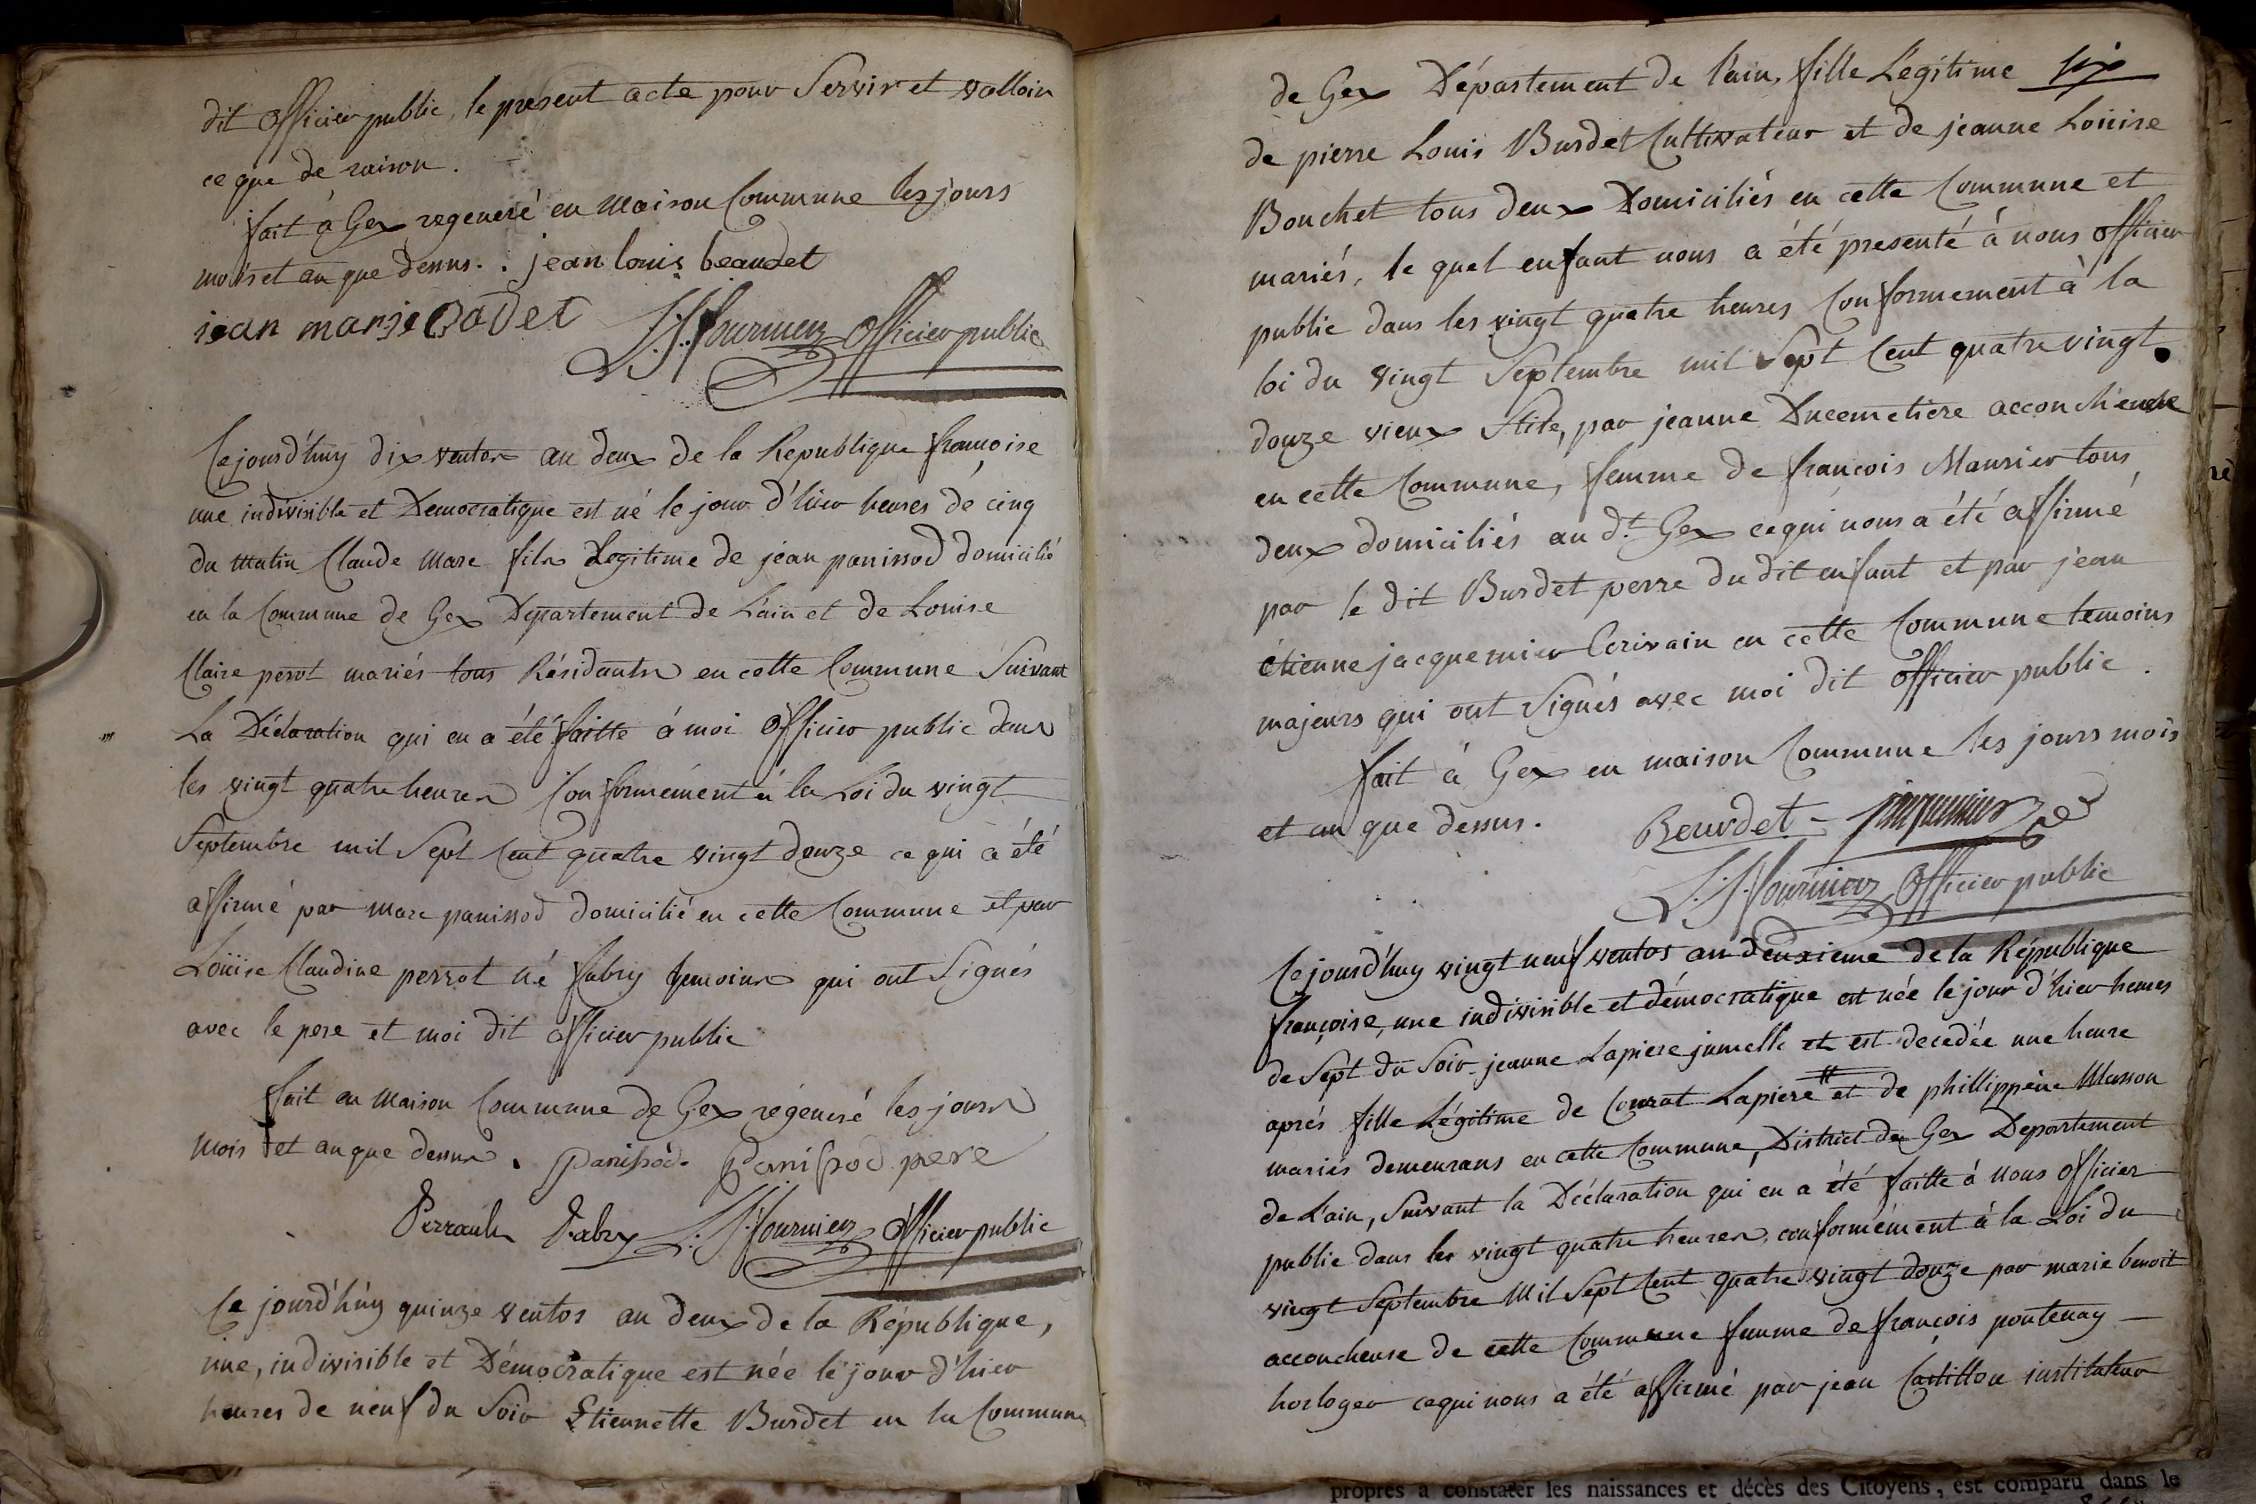 dit officier public, le present acte pour Servir et valloir
ce que de raison.
fait à Gex regeneré en maison Commune les jours
mois et an que dessus. . jean louis beaudet
jean marie Cadet J. J. fournier officier public
Cejourd'huy dix ventos an deux de la Republique françoise
une indivisible et Democratique est né le jour d'hier heures de cinq
du matin Claude Marc fils Legitime de jean panissod domicilié
en la Commune de Gex Département de L'ain et de Louise
Claire perot mariés tous Résidants en cette Commune Suivant
La Déclaration qui en a été faitte à moi officier public dans
les vingt quatre heures Conformément à la Loi du vingt
Septembre mil Sept Cent quatre vingt douze ce qui a été
affirmé par marc panissod domicilié en cette Commune et par
Loüise Claudine perrot né fabry temoins qui ont Signés
avec le pere et moi dit officier public
fait en maison Commune de Gex régeneré les jours
mois et an que dessus. panissod. Panissod pere
Perrault Fabry J. J. fournier officier public
Ce jourd'hüy quinze ventos an deux de la République,
une, indivisible et Démocratique est née le jour d'hier
heures de neuf du Soir Etiennette Burdet en la Commune
de Gex Département de l'ain, fille Légitime six
de pierre Louis Burdet Cultivateur et de jeanne Loüise
Bouchet tous deux Domiciliés en cette Commune et
mariés, le quel enfant nous a été presenté à nous officier
public dans les vingt quatre heures Conformement à la
loi du vingt Septembre mil Sept Cent quatre vingt
douze vieux Stile, par jeanne Ducemetiere accoucheuse
en cette Commune, femme de françois Maurier tous
deux domiciliés au d.t Gex cequi nous a été affirmé
par le dit Burdet perre du dit enfant et par jean
étienne jacquemier Ecrivain en cette Commune temoins
majeurs qui ont Signés avec moi dit officier public.
fait à Gex en maison Commune les jours mois
et an que dessus. Beurdet - jacquemier
J. J. fournier officier public
Cejourd'huy vingt neuf ventos an deuxieme de la République
françoise, une indivisible et démocratique est née le jour d'hier heures
de Sept du Soir jeanne Lapiere jumelle et est decedée une heure
aprés fille Légitime de Conrat Lapiere et de phillippine Masson
mariés demeurans en cette Commune, District de Gex Departement
de L'ain, Suivant la Déclaration qui en a été faitte à nous officier
public dans les vingt quatre heures, conformément à la Loi du
vingt Septembre Mil Sept Cent quatre vingt douze par marie benoit
accoucheuse de cette Commune femme de françois pontenay
horloger cequi nous a été affirmé par jean Castillon instituteur
propres a constater les naissances et décès des Citoyens, est comparu dans le